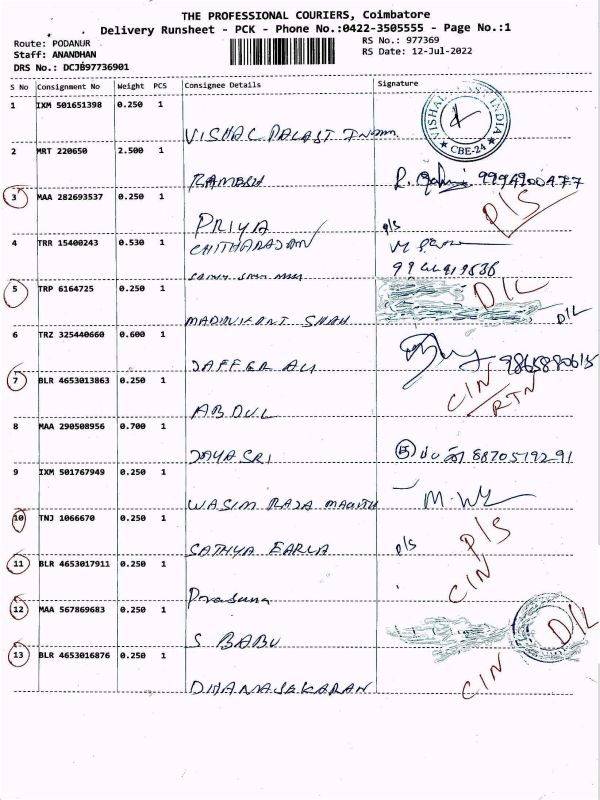 THE PROFESSIONAL COURIERS, Coimbatore
Delivery Runsheet - PCK - Phone No.:0422-3505555 - Page No.:1
Route: PODANUR
RS No.: 977369
Staff: ANANDHAN
RS Date: 12-Jul-2022
DRS No.: DCJB97736901
S No Consignment No Weight PCS Consignee Details Signature
1 IXM 501651398 0.250 1
VISHAL INDIA
CBE-24
2 MRT 220650 2.500 1
RAMESH
3 MAA 282693537 0.250 1
P/S
PRIYA P/S
4 TRR 15400243 0.530 1 CHITHARAJAN
5 TRP 6164725 0.250 1
D/L
MADHUKANT SHAH D/L
6 TRZ 325440660 0.600 1
JAFFER ALI 9865880615
7 BLR 4653013863 0.250 1
C/N
RTN
ABDUL
8 MAA 290508956 0.700 1
JAYASRI 8870519291
9 IXM 501767949 0.250 1
WASIM RAJA
10 TNJ 1066670 0.250 1
P/S
SATHYA P/S
11 BLR 4653017911 0.250 1
C/N
Prasanna
12 MAA 567869683 0.250 1
D/L
S BABU
13 BLR 4653016876 0.250 1
C/N
DHANASEKARAN